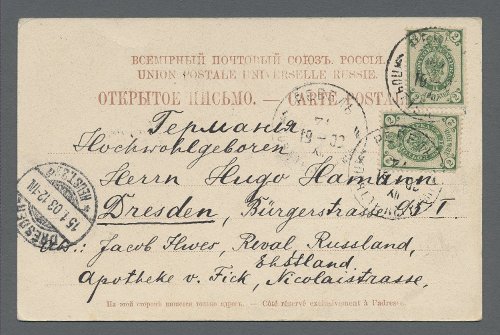 ВСЕМІРНЫЙ ПОЧТОВЫЙ СОЮЗЪ. РОССІЯ.
UNION POSTALE UNIVERSELLE RUSSIE.
ОТКРЫТОЕ ПИСЬМО. — CARTE POSTALE
Германія
Hochwohlgeboren
Herrn Hugo Hamann
Dresden, Bürgerstrasse 95 I
Jacob Ilwes, Reval, Russland,
Ehstland
Apotheke v. Fick, Nicolaistrasse.
На этой сторонѣ пишется только адресъ. — Côté réservé exclusivement à l'adresse.
15.1.03.12-1N.